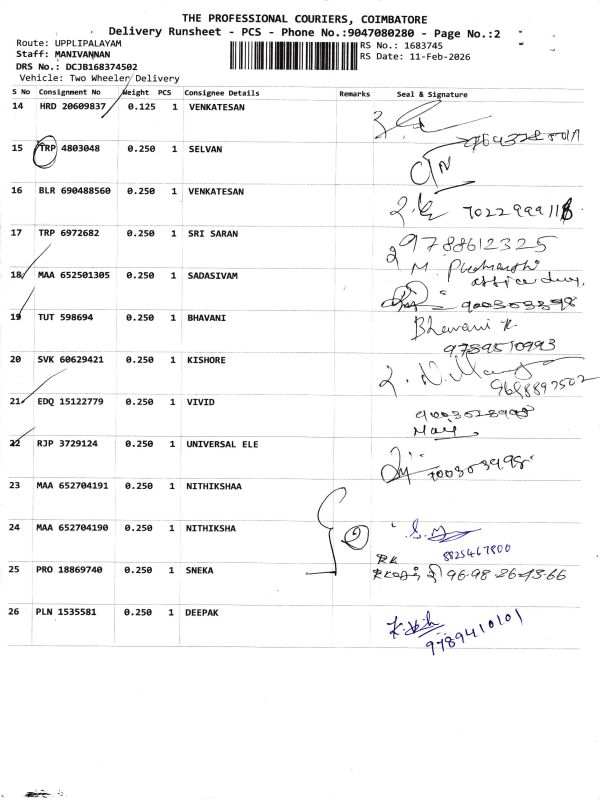 THE PROFESSIONAL COURIERS, COIMBATORE
Delivery Runsheet - PCS - Phone No.:9047080280 - Page No.:2
Route: UPPLIPALAYAM
Staff: MANIVANNAN
DRS No.: DCJB168374502
Vehicle: Two Wheeler Delivery
RS No.: 1683745
RS Date: 11-Feb-2026
S No Consignment No Weight PCS Consignee Details Remarks Seal & Signature
14 HRD 20609837 0.125 1 VENKATESAN
15 TRP 4803048 0.250 1 SELVAN
16 BLR 690488560 0.250 1 VENKATESAN
17 TRP 6972682 0.250 1 SRI SARAN
9788612325
18 MAA 652501305 0.250 1 SADASIVAM
19 TUT 598694 0.250 1 BHAVANI
Bhavani K
9789510993
20 SVK 60629421 0.250 1 KISHORE
21 EDQ 15122779 0.250 1 VIVID
22 RJP 3729124 0.250 1 UNIVERSAL ELE
23 MAA 652704191 0.250 1 NITHIKSHAA
24 MAA 652704190 0.250 1 NITHIKSHA
2
8825467800
25 PRO 18869740 0.250 1 SNEKA
96-98-26-43-66
26 PLN 1535581 0.250 1 DEEPAK
9789410101